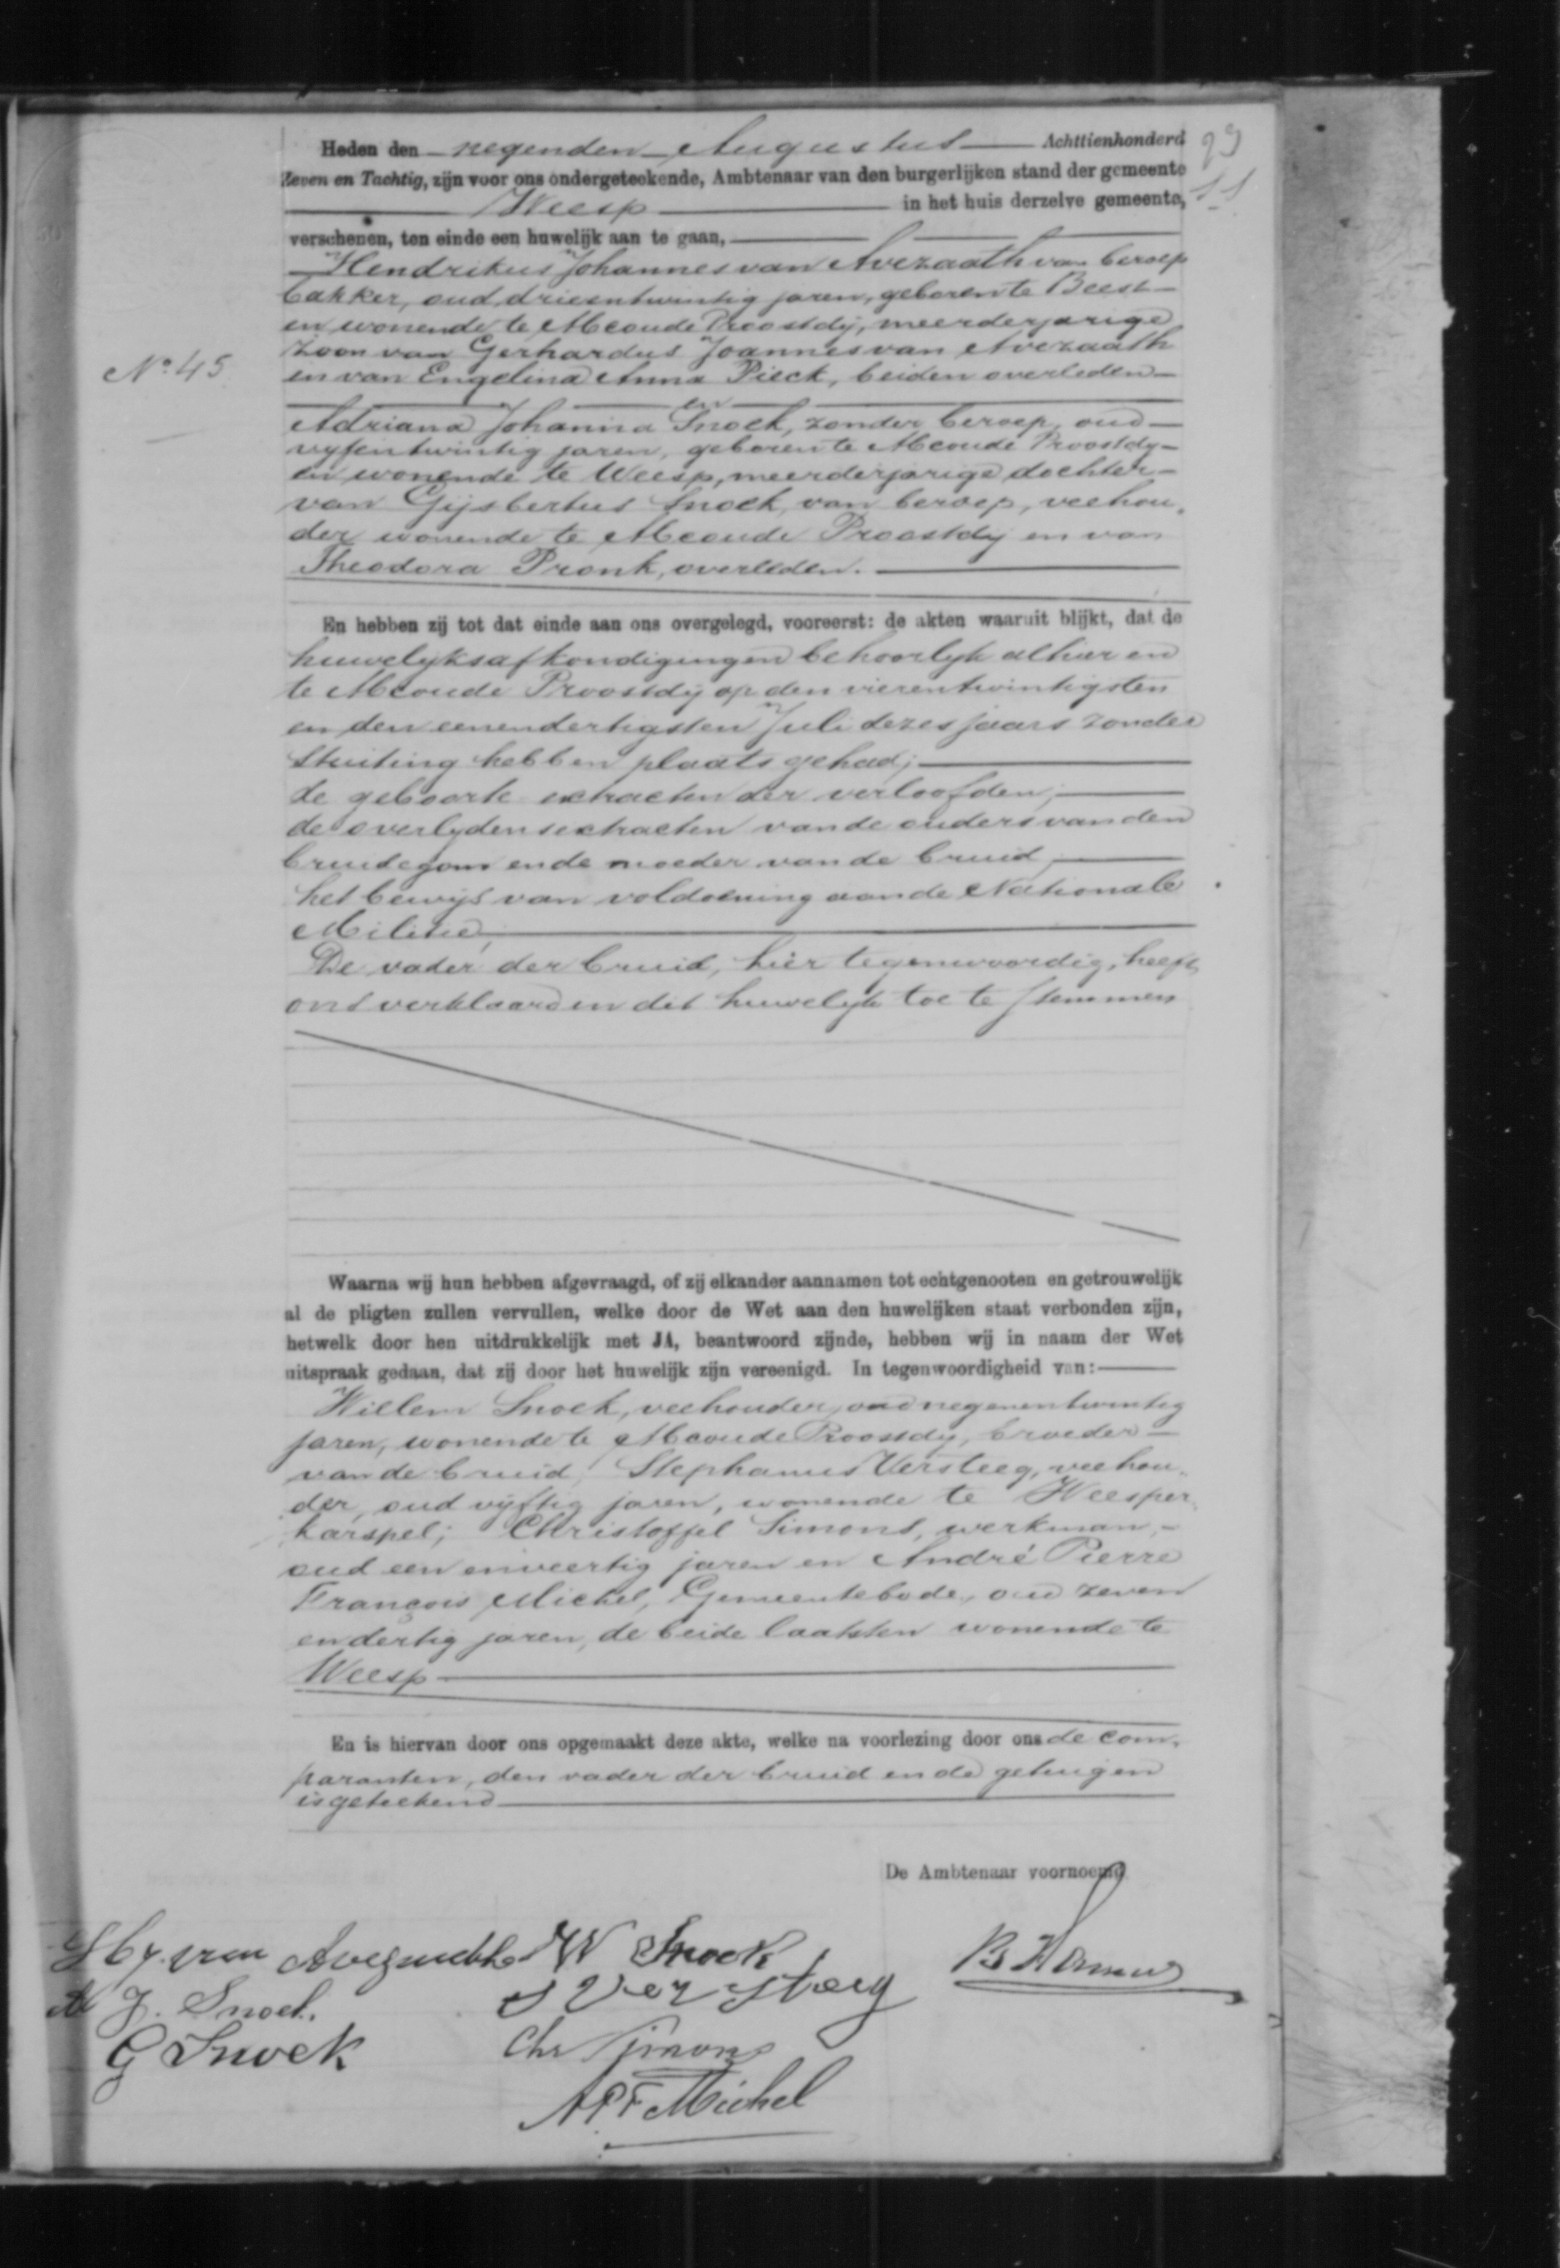 Heden den negenden Augustus Achttienhonderd
Zeven en Tachtig, zijn voor ons ondergeteekende, Ambtenaar van den burgerlijken stand der gemeente
Weesp in het huis derzelve gemeente,
verschenen, ten einde een huwelijk aan te gaan,
Hendrikus Johannes van Avezaath van beroep
bakker, oud drieentwintig jaren, geboren te Beest
en wonende te Abcoude Proostdij, meerderjarige
zoon van Gerhardus Joannes van Avezaath
No 45
en van Engelina Anna Pieck, beiden overleden
en
Adriana Johanna Snoek, zonder beroep, oud
vyfentwintig jaren, geboren te Abcoude Proostdy
en wonende te Weesp, meerderjarige dochter
van Gijsbertus Snoek, van beroep, veehou,
der wonende te Abcoude Proostdij en van
Theodora Pronk, overleden.
En hebben zij tot dat einde aan ons overgelegd, vooreerst: de akten waaruit blijkt, dat de
huwelyksafkondigingen behoorlyk alhier en
te Abcoude Proostdij op den vierentwintigsten
en den eenendertigsten Juli dezes jaars zonder
stuiting hebben plaats gehad;
de geboorte extracten der verloofden;
de overlydensextracten van de ouders van den
bruidegom en de moeder van de bruid;
het bewijs van voldoening aan de Nationale
Militie;
De vader der bruid, hier tegenwoordig, heeft
ons verklaard in dit huwelyk toe te stemmen
Waarna wij hun hebben afgevraagd, of zij elkander aannamen tot echtgenooten en getrouwelijk
al de pligten zullen vervullen, welke door de Wet aan den huwelijken staat verbonden zijn,
hetwelk door hen uitdrukkelijk met JA, beantwoord zijnde, hebben wij in naam der Wet
uitspraak gedaan, dat zij door het huwelijk zijn vereenigd. In tegenwoordigheid van:
Willem Snoek, veehouder, oud negenentwintig
jaren, wonende te Abcoude Proostdy, broeder
van de bruid; Stephanus Versteeg, veehou,
der, oud vyftig jaren, wonende te Weesper,
karspel; Christoffel Simons, werkman,
oud een enveertig jaren en André Pierre
François Michel, Gemeentebode, oud zeven
endertig jaren, de beide laatsten wonende te
Weesp
En is hiervan door ons opgemaakt deze akte, welke na voorlezing door ons de com,
paranten, den vader der bruid en de getuigen
is geteekend
De Ambtenaar voornoemd
H J van Avezaath W Snoek
A J. Snoek. S Versteeg
G Snoek Chr Simons
A P F Michel